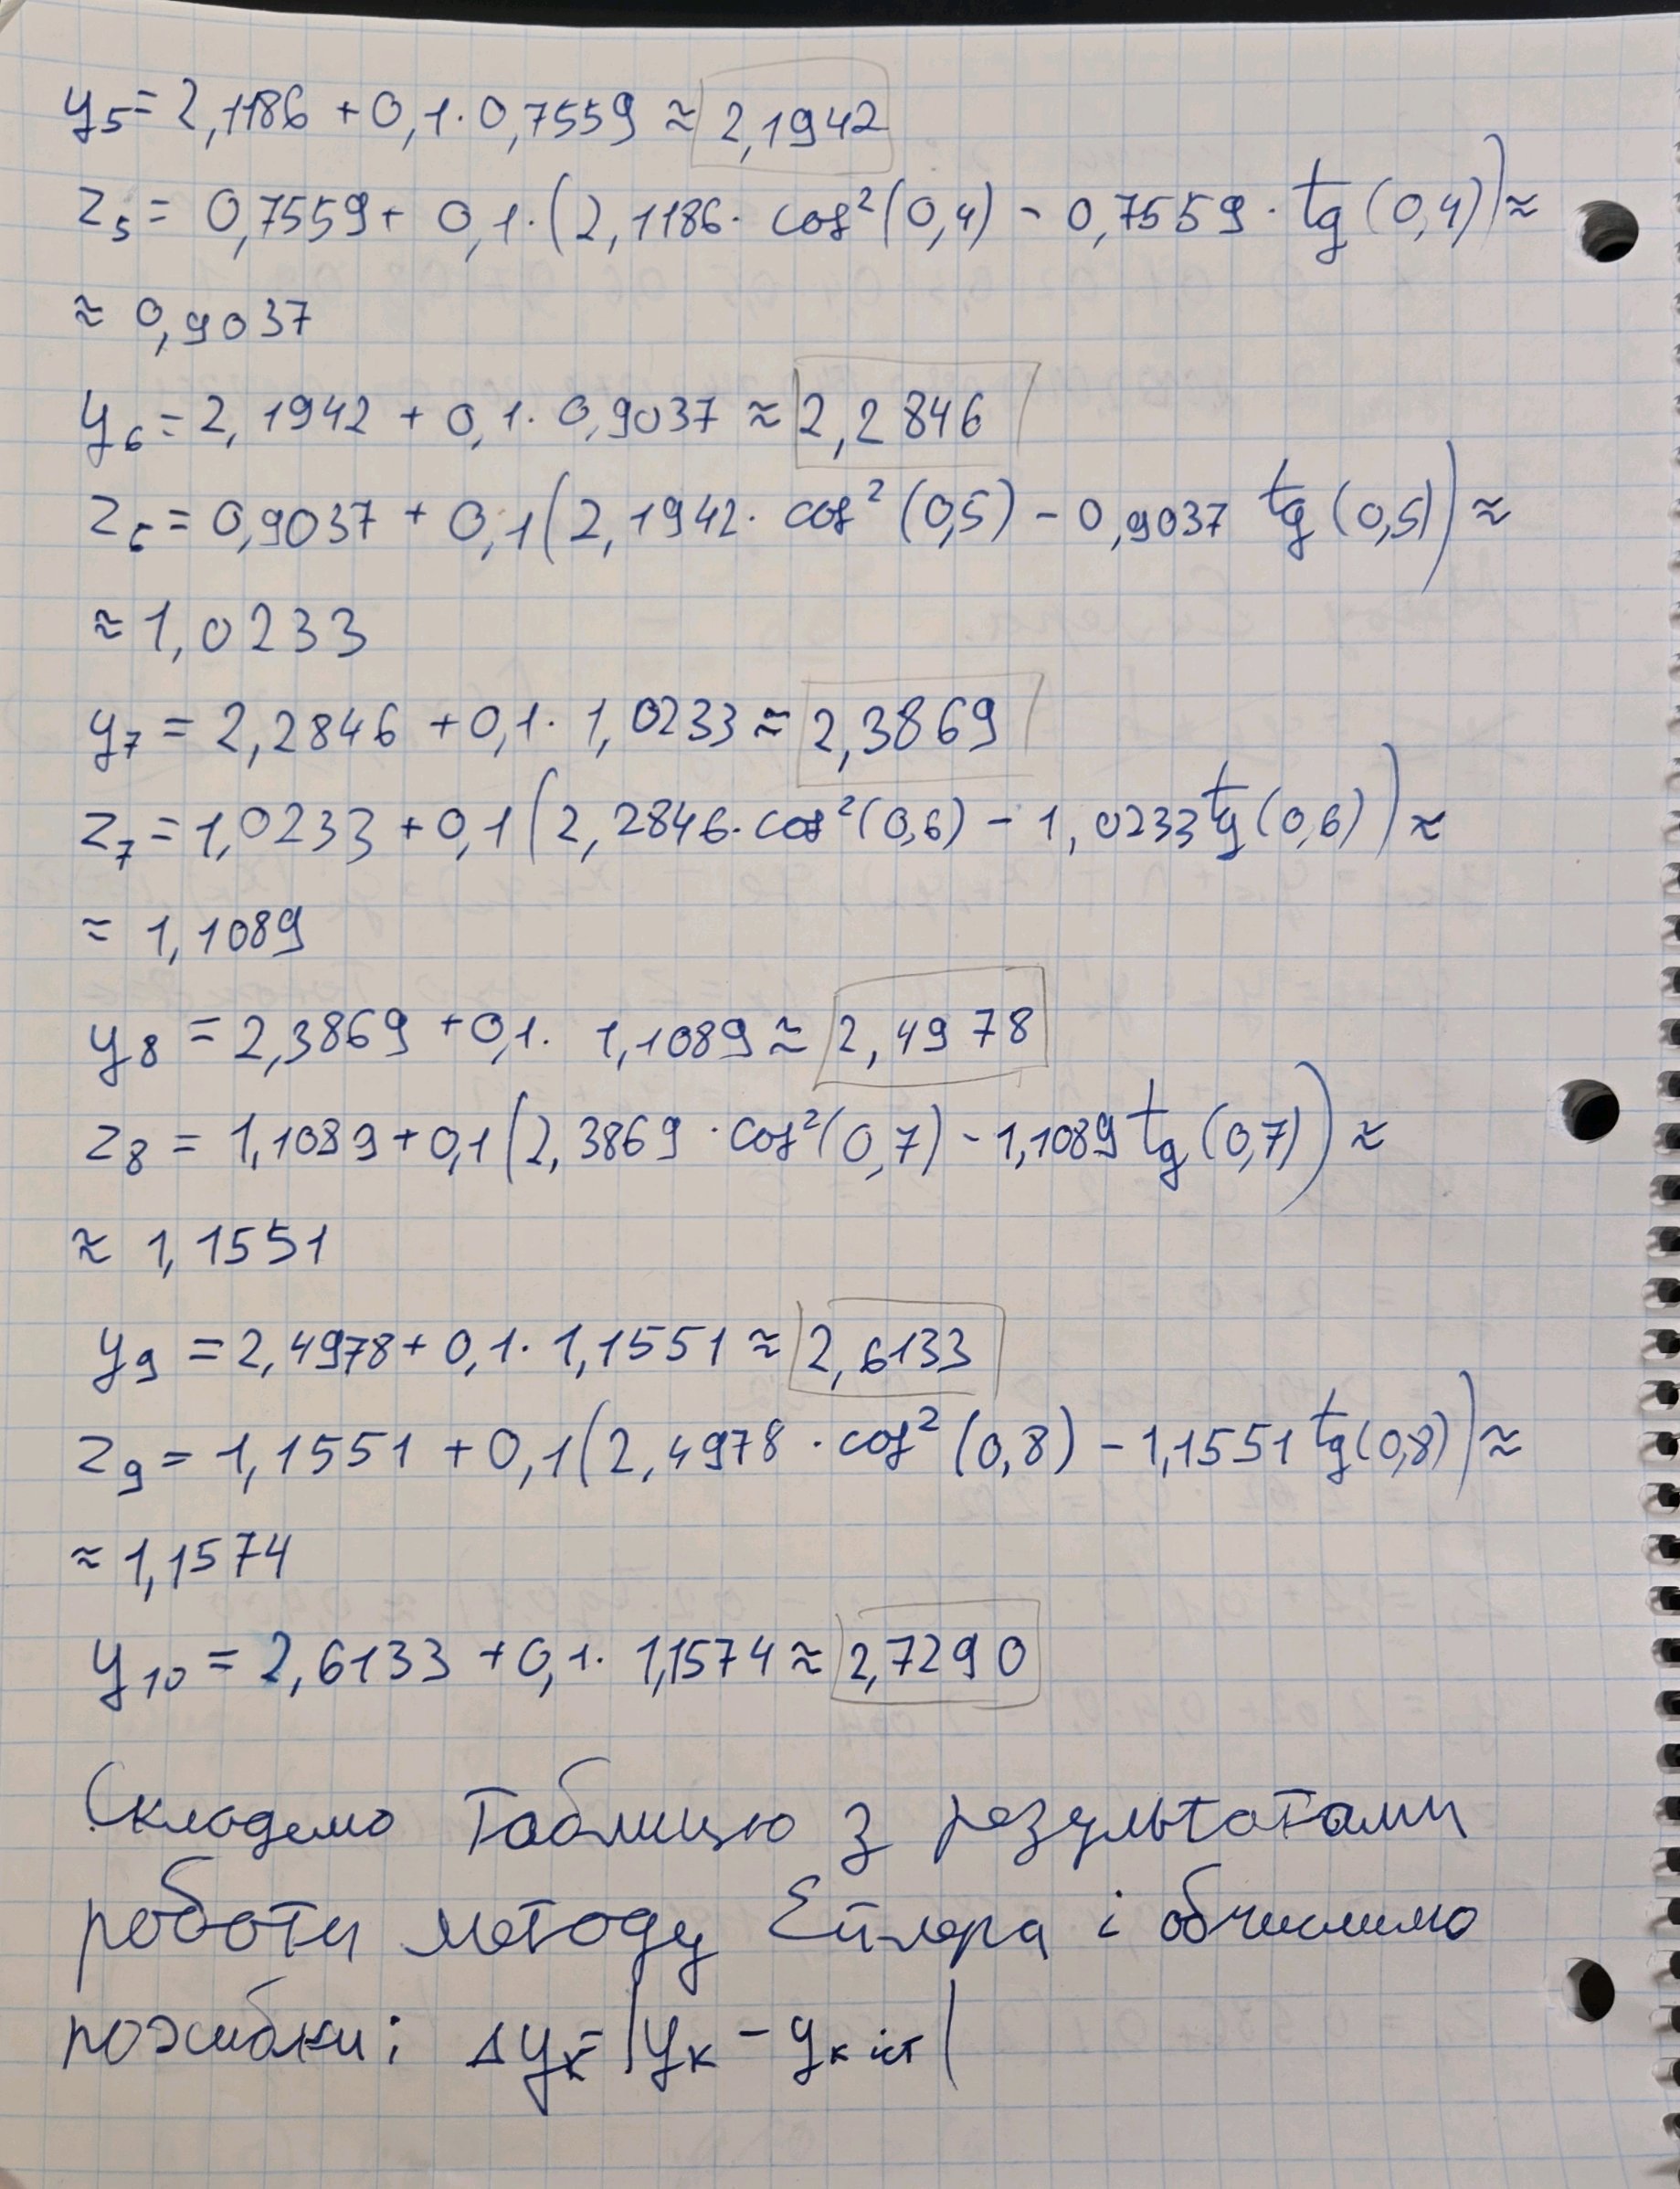 y₅ = 2,1186 + 0,1 · 0,7559 ≈ 2,1942
z₅ = 0,7559 + 0,1 · (2,1186 · cos²(0,4) - 0,7559 · tg (0,4)) ≈
≈ 0,9037
y₆ = 2,1942 + 0,1 · 0,9037 ≈ 2,2846
z₆ = 0,9037 + 0,1 (2,1942 · cos² (0,5) - 0,9037 tg (0,5)) ≈
≈ 1,0233
y₇ = 2,2846 + 0,1 · 1,0233 ≈ 2,3869
z₇ = 1,0233 + 0,1 (2,2846 · cos²(0,6) - 1,0233 tg (0,6)) ≈
≈ 1,1089
y₈ = 2,3869 + 0,1 · 1,1089 ≈ 2,4978
z₈ = 1,1089 + 0,1 (2,3869 · cos²(0,7) - 1,1089 tg (0,7)) ≈
≈ 1,1551
y₉ = 2,4978 + 0,1 · 1,1551 ≈ 2,6133
z₉ = 1,1551 + 0,1 (2,4978 · cos² (0,8) - 1,1551 tg (0,8)) ≈
≈ 1,1574
y₁₀ = 2,6133 + 0,1 · 1,1574 ≈ 2,7290
Складемо таблицю з результатами
роботи методу Ейлера і обчислимо
похибки: Δyₖ = |yₖ - yₖ іст|